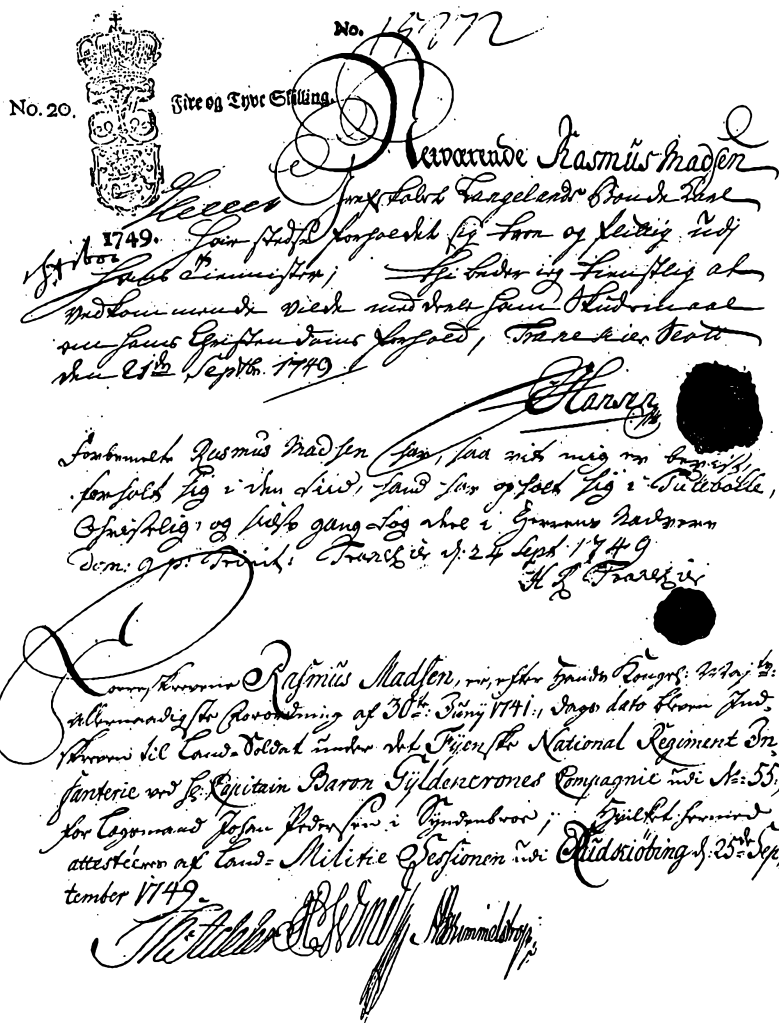 No. 15772
No. 20. Fire og Tyve Skilling.
Nerværende Rasmus Madsen
Grefskabet Langelands Bonde Karl
1749. Haver stedse forholdet sig troe og flittig udj
Hans Tiennister; thi beder ieg tienstlig at
vedkommende vilde meddeele ham Skudsmaal
om hans Christendoms forhold, Tranekier Slott
den 21de Septbr. 1749
Hansen
Forbemelte Rasmus Madsen har, saa vit mig er bevist,
forholt sig i den tiid, hand har opholt sig i Tullebølle,
Christelig, og sidste gang tog deel i Herrens Nadvere
Dom: 9 p: Trinit: Tranekier d: 24 Sept 1749
Tranekier
Foreskrevene Rasmus Madsen, er, efter Hands Kongel: Mayts:
allernaadigste Forordning af 30te Juny 1741, dags dato bleven Ind-
skreven til Land-Soldat under det Fyenske National Regiment In-
fanterie ved Hr: Capitain Baron Gyldencrones Compagnie udi No: 55,
for Lægsmand Johan Pedersen i Syndenbroe, Hvilket hermed
attesteres af Land-Militie Sessionen udi Rudkiöbing d: 25de Sep-
tember 1749.